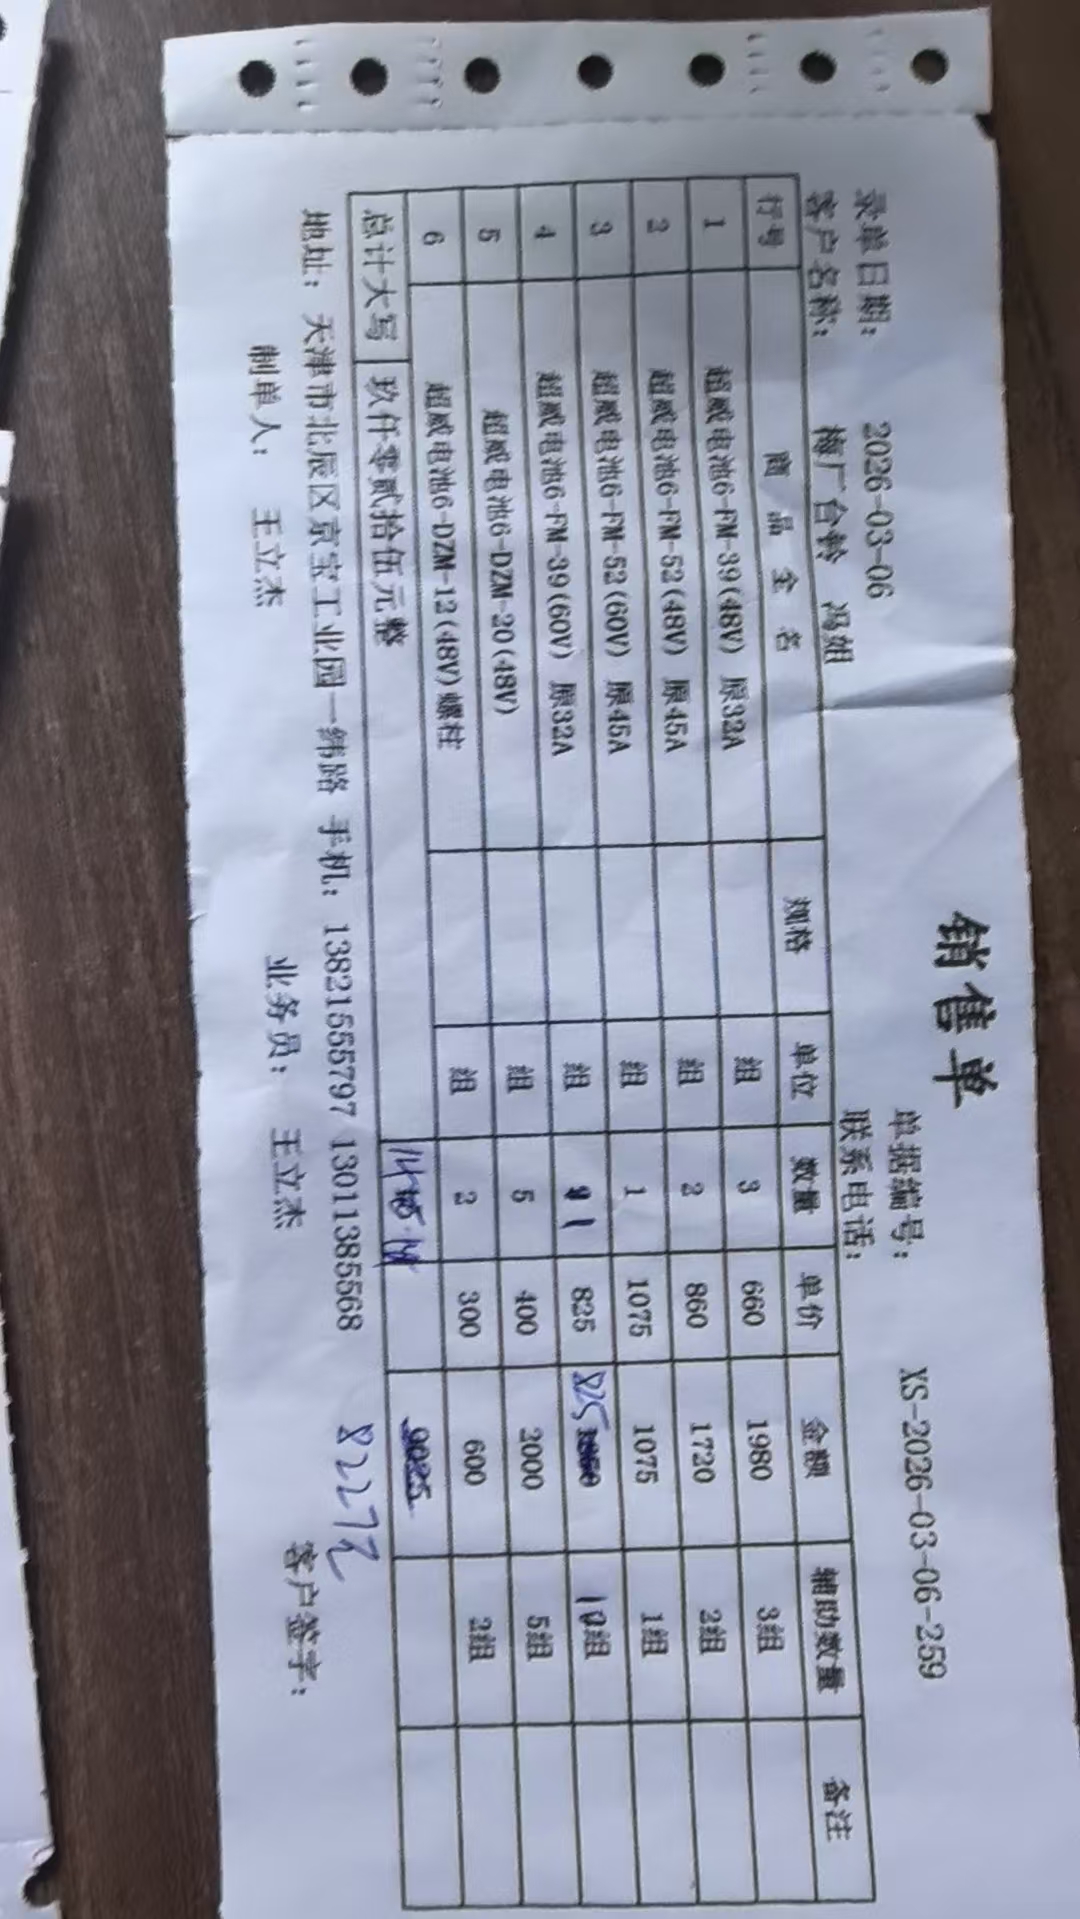 销售单
录单日期: 2026-03-06 单据编号: XS-2026-03-06-259
客户名称: 梅厂台铃 冯姐 联系电话:
行号 商品全名 规格 单位 数量 单价 金额 辅助数量 备注
1 超威电池6-FM-39(48V) 原32A 组 3 660 1980 3组
2 超威电池6-FM-52(48V) 原45A 组 2 860 1720 2组
3 超威电池6-FM-52(60V) 原45A 组 1 1075 1075 1组
4 超威电池6-FM-39(60V) 原32A 组 1 825 825 组
5 超威电池6-DZM-20(48V) 组 5 400 2000 5组
6 超威电池6-DZM-12(48V)螺柱 组 2 300 600 2组
总计大写 玖仟零贰拾伍元整 9025
地址: 天津市北辰区京宝工业园一纬路 手机: 13821555797 13011385568
制单人: 王立杰 业务员: 王立杰 客户签字: